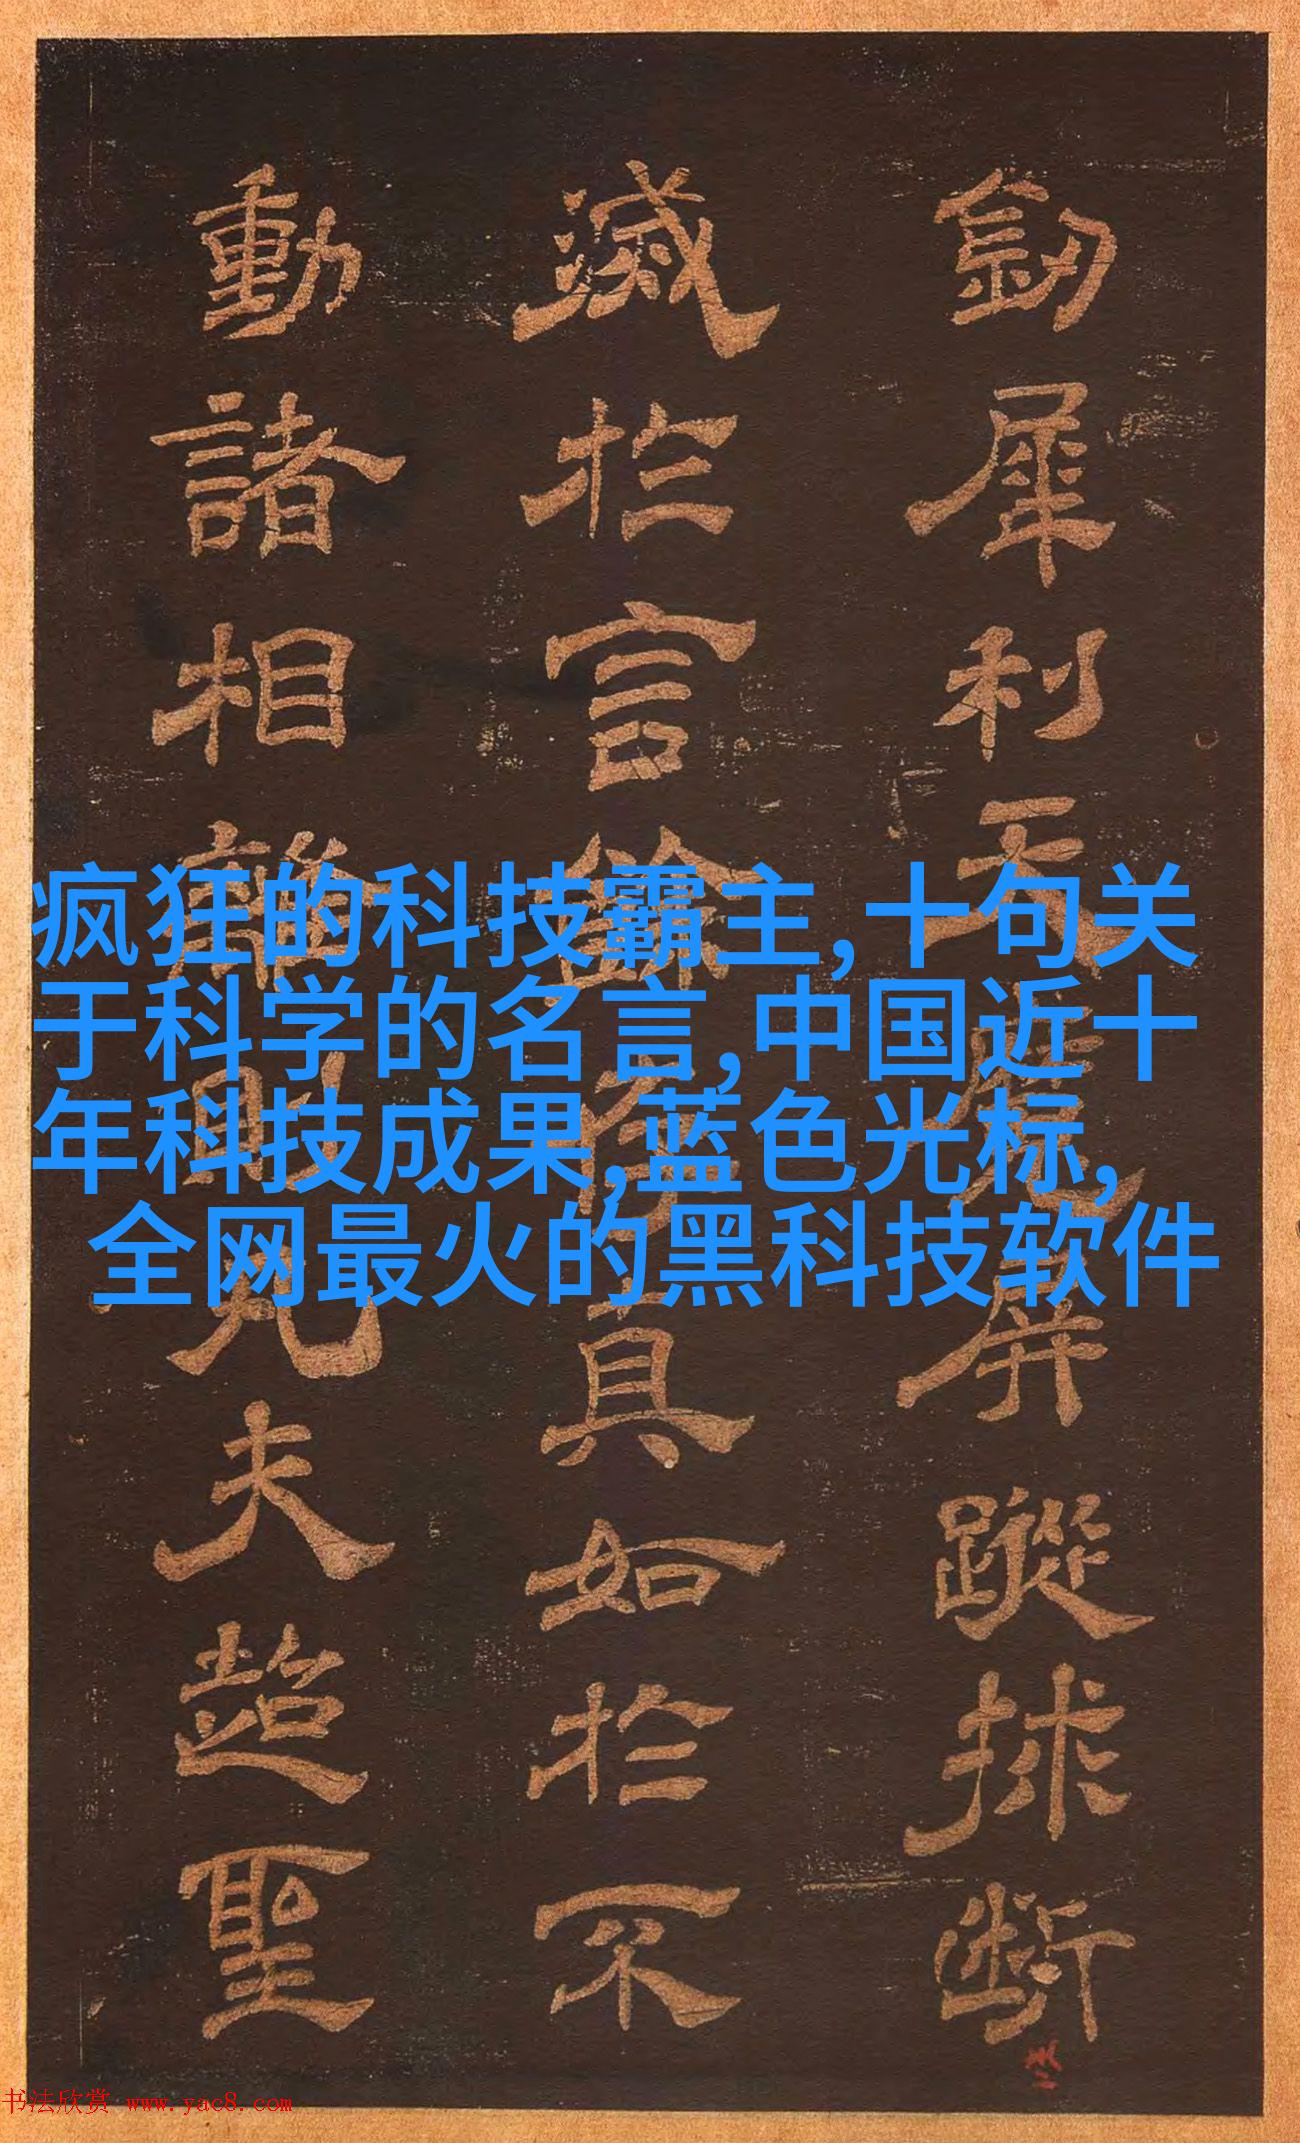 釼犀利天魔屏蹤排斷
滅於言餘存真如於不
動諸相離則凡夫超聖
疯狂的科技霸主,十句关
于科学的名言,中国近十
年科技成果,蓝色光标,
全网最火的黑科技软件
书法欣赏 www.yac8.com